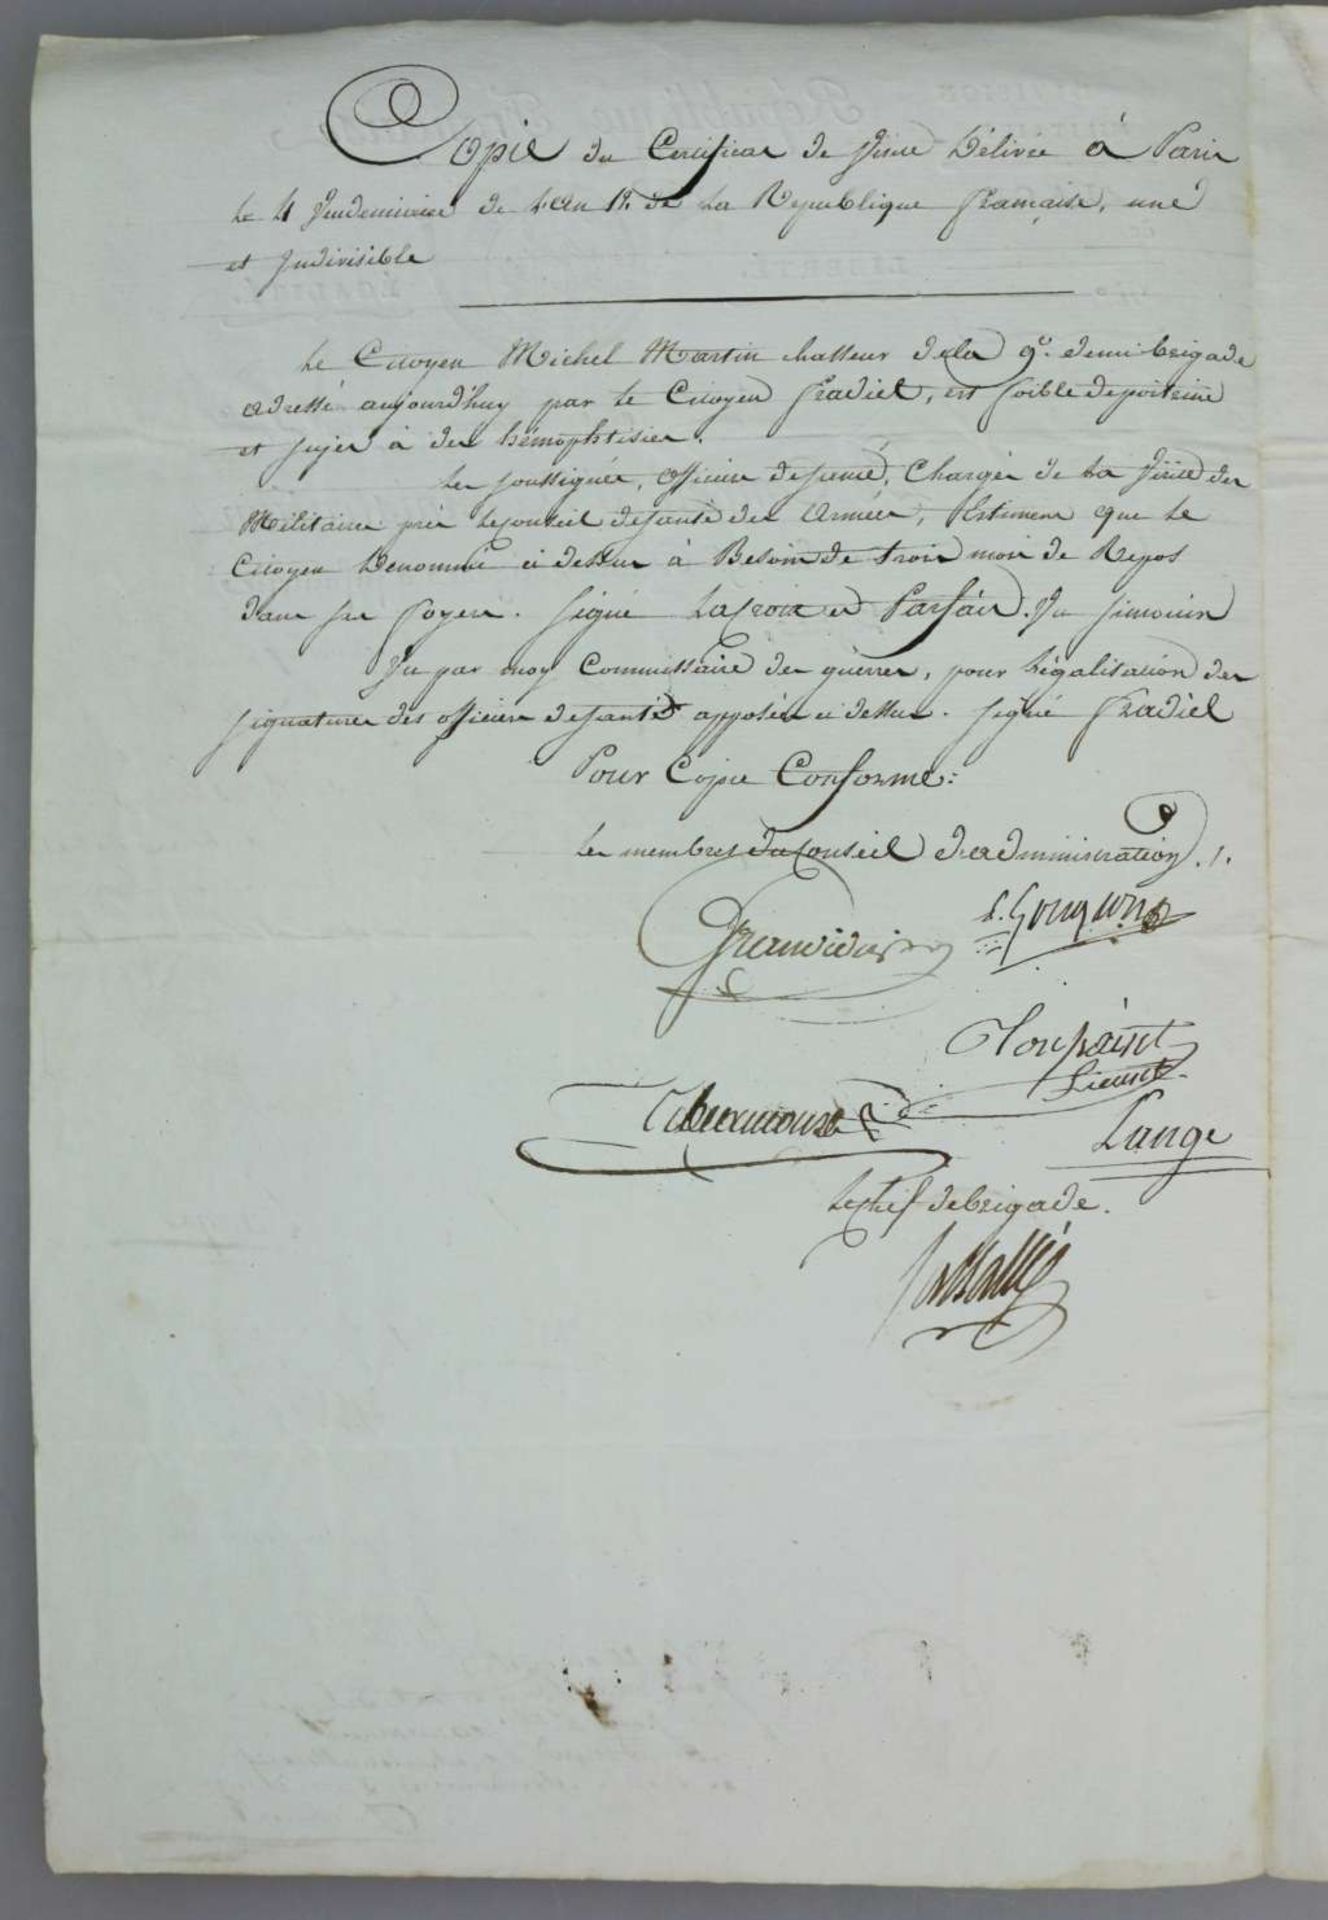 Copie du Certificat de Visite Délivré à Paris
le 4 Vendemiaire de l'an 12. de La Republique française, une
et Indivisible
Le Citoyen Michel Martin chasseur dela 9e. demi brigade
adressé aujourd'huy par le Citoyen Fradiel, est foible depoitrine
et sujet à des hémophtisies.
Les soussignés, officiers desanté, Chargés de La Visite des
Militaires près leconseil desanté des Armées, Estiment que le
Citoyen Denommé ci dessus à Besoin de trois mois de Repos
dans ses foyers. signé Lacroix et Parfait. Vu Simonin
Vu par moy Commissaire des guerres, pour Légalisation des
signatures des officiers desanté apposées ci dessus. signé Fradiel
Pour Copie Conforme:
les membres du Conseil D'administration./.
Lieunt
Lange
Lechef debrigade.